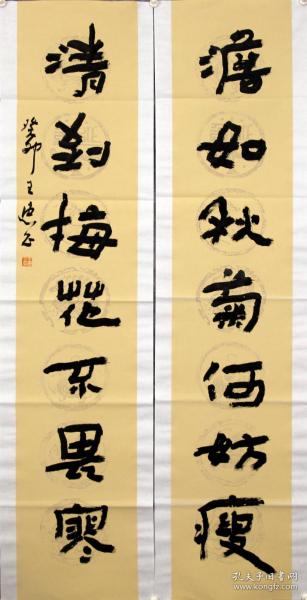 澹如秋菊何妨瘦
清到梅花不畏寒
癸卯王
孔夫子旧书网